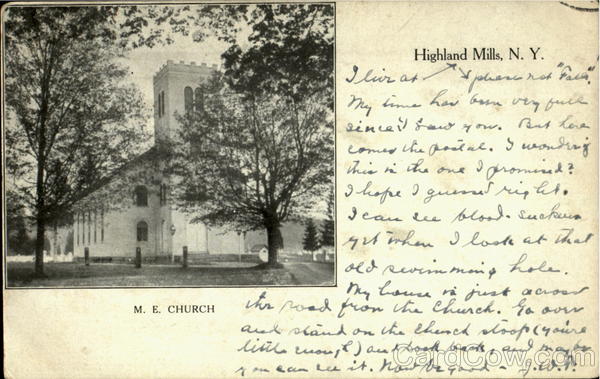 Highland Mills, N. Y.
I live at please not "Falls"
My time has been very full
since I saw you. But here
comes the postal. I wonder if
this is the one I promised?
I hope I guessed right.
I can see blood-suckers
yet when I look at that
old swimming hole.
My house is just across
the road from the church. Go over
and stand on the church stoop (you're
little enough) and look back, and maybe
you can see it. Now be good -
M. E. CHURCH
CardCow.com